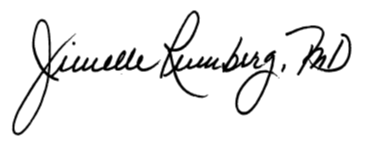 Jimelle Rumberg, PhD